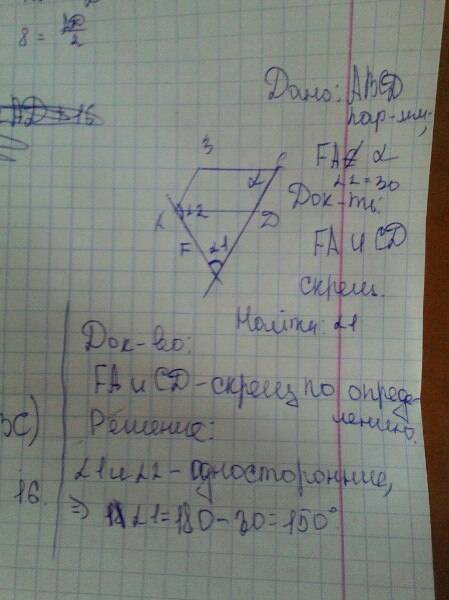 8 = AD/2
AD = 16
Дано: ABCD
пар-мм;
FA⊄ α
∠2=30
Док-ть:
FA и CD
скрещ.
Найти: ∠1
B
C
α
A
∠2
D
F
∠1
Док-во:
FA и CD-скрещ по опреде-
лению.
BC)
Решение:
∠1 и ∠2-односторонние,
16
⇒ ∠1=180-30=150°